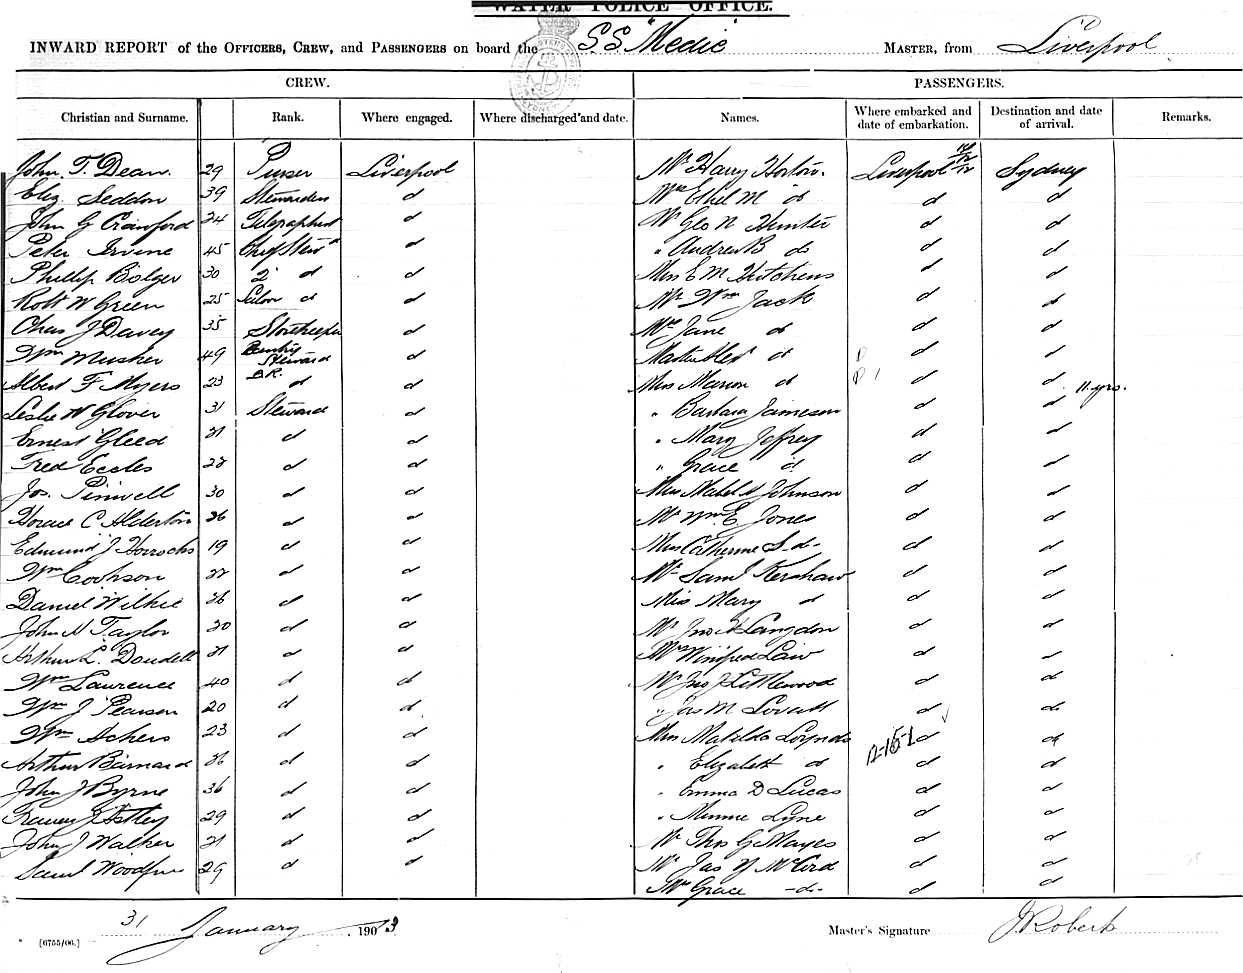 WATER POLICE OFFICE.
INWARD REPORT of the OFFICERS, CREW, and PASSENGERS on board the SS "Medic" MASTER, from Liverpool
CREW. PASSENGERS.
Christian and Surname. Rank. Where engaged. Where discharged and date. Names. Where embarked and date of embarkation. Destination and date of arrival. Remarks.
John T. Dean. 29 Purser Liverpool Mr Harry Horton. Liverpool Sydney
Eliz Seddon 39 Stewardess d Mrs Ethel M d d d
John G Crawford 24 Telegraphist d Mr Geo N Hunter d d
Peter Irvine 45 Chief Stewd d " Andrew B do d d
Phillip Bolger 30 2 d d Miss E M Hutchens d d
Robt W Green 25 Saloon d d Mr Wm Jack d d
Chas J Davey 35 Storekeeper d Mrs Jane d d d
Wm Musker 49 Steward d Master Alex d d d
Albert F Myers 23 B.R. d d Miss Marion d d d 11 yrs.
Leslie W Glover 31 Steward d " Barbara Jameson d d
Ernest Gleed 21 d d " Mary Jeffrey d d
Fred Eccles 22 d d " Grace d d d
Jos. Pinwell 30 d d Miss Mabel Johnson d d
Horace C Alderton 26 d d Mr Wm E. Jones d d
Edmund J Horrocks 19 d d Miss Catherine S -do- d d
Wm Cookson 22 d d Mr Saml Kershaw d d
Daniel Wilkie 26 d d Miss Mary d d d
John N Taylor 20 d d Mr Jno H Langdon d d
Arthur L. Doudell 21 d d Winifred Law d d
Wm Lawrence 40 d d Mr Jno J Littlewood d d
Wm J Pearson 20 d d " Jas M Lovatt d d
Wm Ackers 23 d d Miss Matilda Loynds d d
12-15-1
Arthur Barnard 26 d d " Elizabeth d d d
John J Byrne 36 d d " Emma D Lucas d d
Astley 29 d d " Minnie Lyne d d
John J Walker 21 d d Mr Thos G Mayes d d
Saml 29 d d Mr Jas McCord d d
Mrs Grace -do- d d
31 January 1903
[6755/06.]
Master's Signature J Roberts